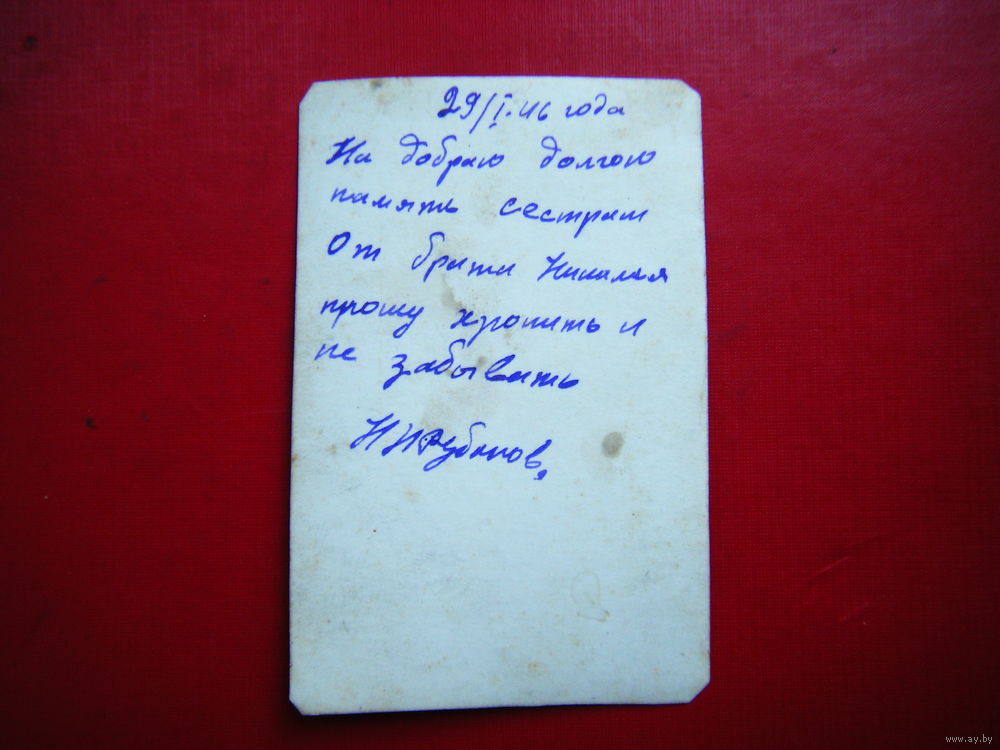 29/I.46 года
На добраю долгою
память сестрам
От брата Николая
прошу хронить и
не забывать
Н И Рубанов,
www.ay.by